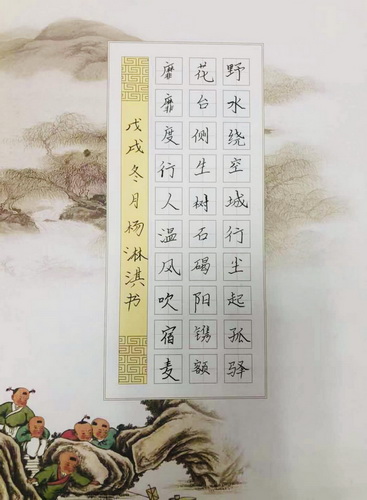 野水绕空城行尘起孤驿
花台侧生树石碣阳镌额
靡靡度行人温风吹宿麦
戊戌冬月杨淋淇书